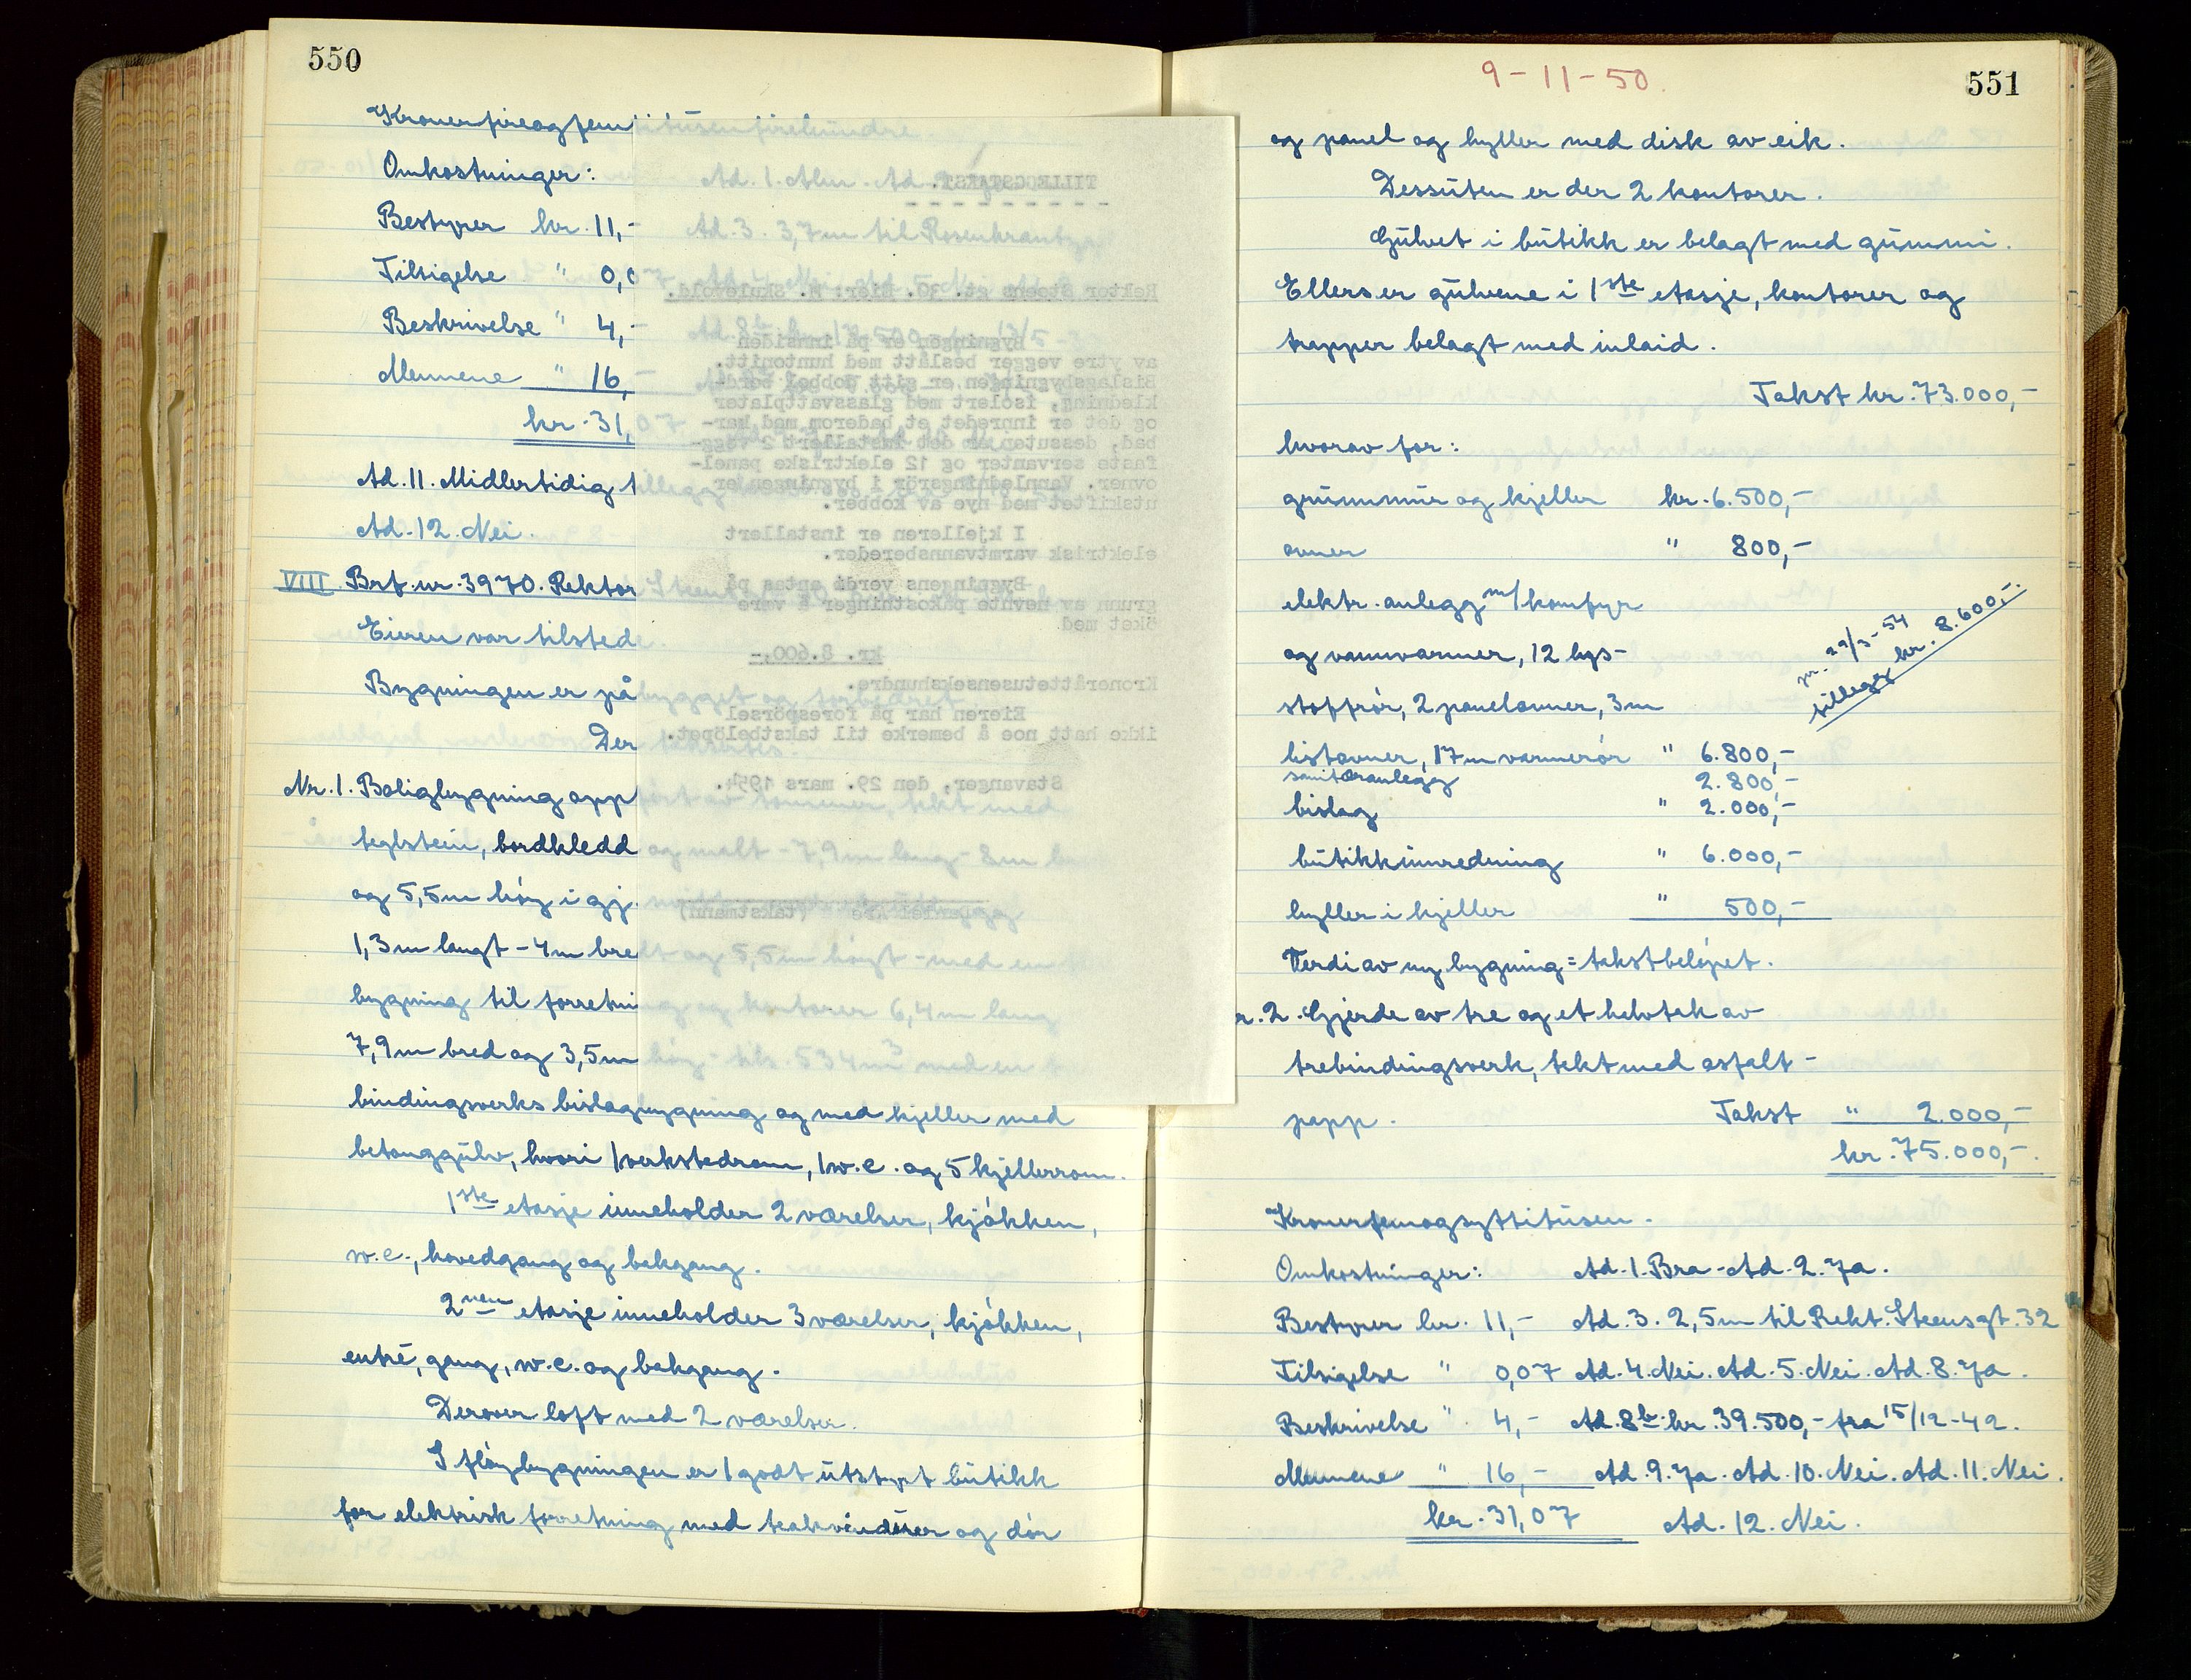 550
Kroner fireogfemtitusenfirehundre.
Omkostninger: Ad. 1. Alm. Ad. 2. Ja.
Bestyrer kr. 11,- Ad. 3. 3,7m til Rosenkrantzgt.
Tilsigelse " 0,07 Ad. 4. Nei. Ad. 5. Nei.
Beskrivelse " 4,- Ad. 8b
Mennene " 16,-
kr. 31,07
Ad. 11. Midlertidig tillegg
Ad. 12. Nei.
VIII. Brf. nr. 3970. Rektor Steens
Eieren var tilstede.
Bygningen er påbygget og forbedret.
Der taksertes.
Nr. 1. Boligbygning oppført av tømmer, tekt med
teglstein, bordkledd og malt - 7,9m lang - 8m
og 5,5m høy i gj.
1,3m langt - 4m bredt og 5,5m høyt - med en
bygning til forretning og kontorer 6,4m lang
7,9m bred og 3,5m høy - tils. 534m³ med en
bindingsverks bislagbygning og med kjeller med
betonggulv, hvori 1 verkstedrom, 1 w.c. og 5 kjellerrom.
1ste etasje inneholder 2 værelser, kjøkken,
w.c., hovedgang og bakgang.
2nen etasje inneholder 3 værelser, kjøkken,
entré, gang, w.c. og bakgang.
Derover loft med 2 værelser.
I fløybygningen er 1 godt utstyrt butikk
for elektrisk forretning med teakvinduer og dør
TILLEGGSTAKST.
Rektor Steens gt. 30. Eier: M. Skulevold.
Bygningen er på innsiden
av ytre vegger beslått med huntonitt.
Bislagsbygningen er gitt dobbel bord-
kledning, isolert med glassvattplater
og det er innredet et baderom med kar-
bad, dessuten er det installert 2 vegg-
faste servanter og 12 elektriske panel-
ovner. Vannledningsrör i bygningen er
utskiftet med nye av kobber.
I kjelleren er installert
elektrisk varmtvannsbereder.
Bygningens verdi antas på
grunn av nevnte påkostninger å være
öket med
kr. 8.600,-
Kroneråttetusensekshundre.
Eieren har på forespörsel
ikke hatt noe å bemerke til takstbelöpet.
Stavanger, den 29. mars 1954.
(takstmann)
9-11-50.
551
og panel og hyller med disk av eik.
Dessuten er der 2 kontorer.
Gulvet i butikk er belagt med gummi.
Ellers er gulvene i 1ste etasje, kontorer og
trapper belagt med inlaid.
Takst kr. 73.000,-
hvorav for:
grunnmur og kjeller kr. 6.500,-
ovner " 800,-
elektr. anlegg m/komfyr
og vannvarmer, 12 lys-
stoffrör, 2 panelovner, 3m
listovner, 17m varmerör " 6.800,-
sanitæranlegg 2.800,-
bislag " 2.000,-
butikkinnredning " 6.000,-
hyller i kjeller " 500,-
pr. 29/3-54
tillegg kr. 8.600,-
Verdi av ny bygning = takstbeløpet.
r. 2. Gjerde av tre og et halvtak av
trebindingsverk, tekt med asfalt-
papp. Takst " 2.000,-
kr. 75.000,-.
Kronerfemogsyttitusen.
Omkostninger: Ad. 1. Bra - Ad. 2. Ja.
Bestyrer kr. 11,- Ad. 3. 2,5m til Rekt. Steensgt. 32
Tilsigelse " 0,07 Ad. 4. Nei. Ad. 5. Nei. Ad. 8. Ja.
Beskrivelse " 4,- Ad. 8b kr. 39.500,- fra 15/12-42.
Mennene " 16,- Ad. 9. Ja. Ad. 10. Nei. Ad. 11. Nei.
kr. 31,07 Ad. 12. Nei.